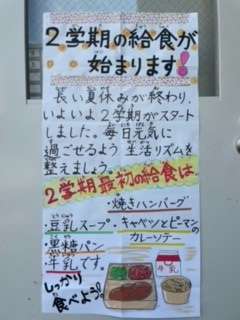 2学期の給食が
始まります!
長い夏休みが終わり、
いよいよ2学期がスタート
しました。毎日元気に
過ごせるよう 生活リズムを
整えましょう。
2学期最初の給食は、
・焼きハンバーグ
・豆乳スープ・キャベツとピーマンの
カレーソテー
・黒糖パン
・牛乳です。
しっかり
食べよう。
牛乳